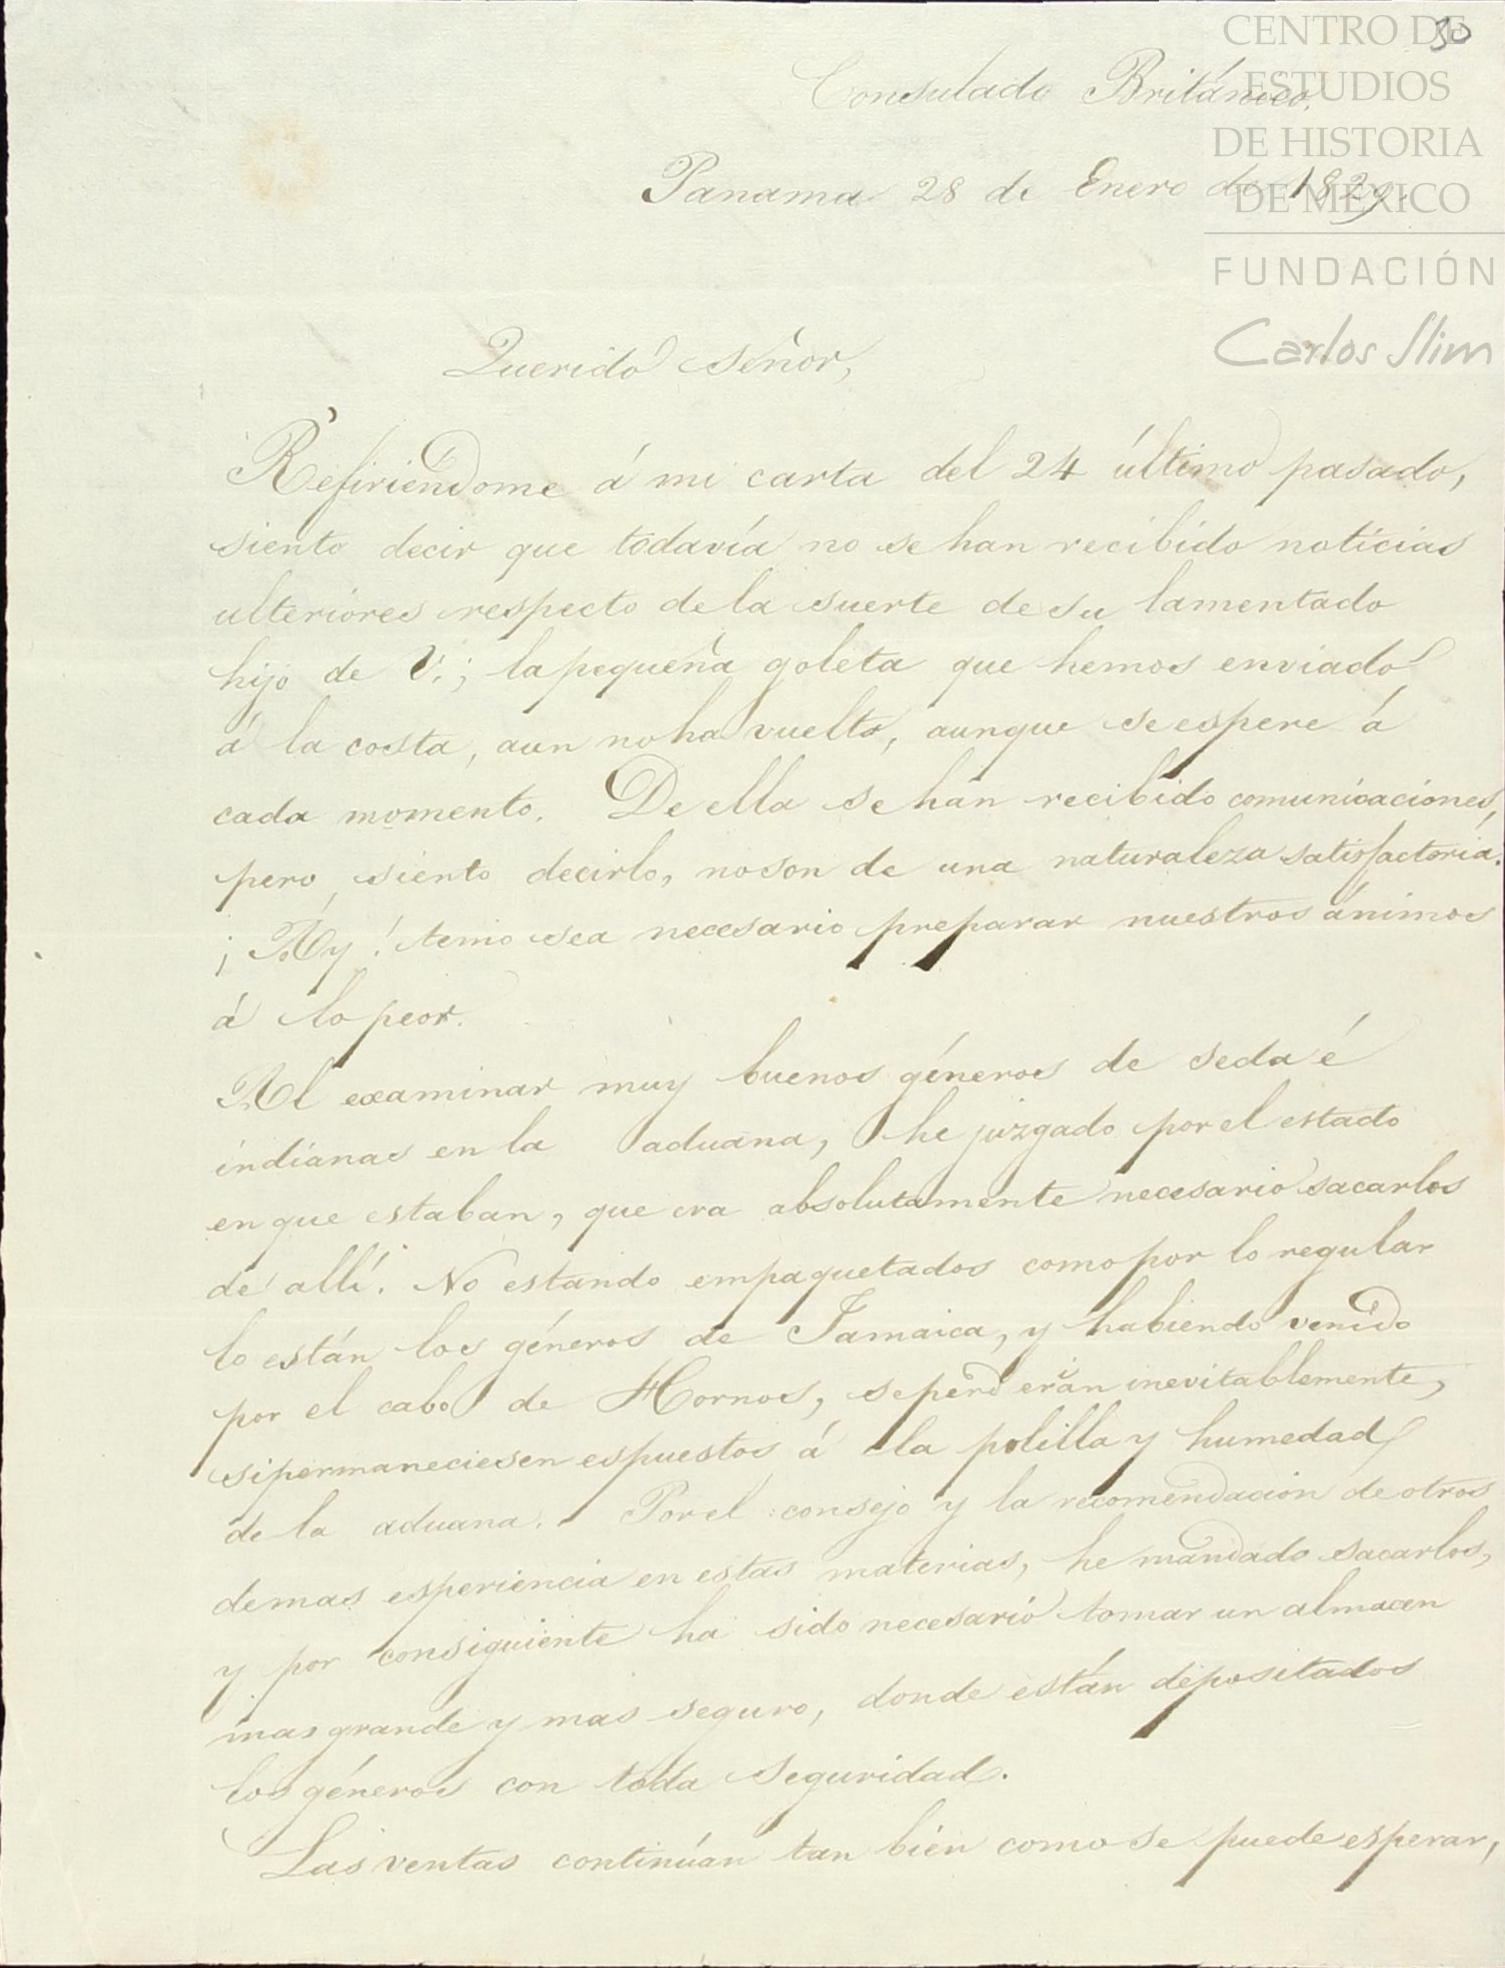 30
CENTRO DE
ESTUDIOS
DE HISTORIA
DE MÉXICO
FUNDACIÓN
Carlos Slim
Consulado Británico.
Panama 28 de Enero de 1829.
Querido Señor,
Refiriéndome á mi carta del 24 último pasado,
siento decir que todavía no se han recibido noticias
ulteriores respecto de la suerte de su lamentado
hijo de V.; la pequeña goleta que hemos enviado
á la costa, aun no ha vuelto, aunque se espere á
cada momento. De ella se han recibido comunicaciones,
pero, siento decirlo, no son de una naturaleza satisfactoria.
¡Ay! temo sea necesario preparar nuestros ánimos
á lo peor.
Al examinar muy buenos géneros de seda é
indianas en la aduana, he juzgado por el estado
en que estaban, que era absolutamente necesario sacarlos
de allí. No estando empaquetados como por lo regular
lo están los géneros de Jamaica, y habiendo venido
por el cabo de Hornos, se perderán inevitablemente,
si permaneciesen espuestos á la polilla y humedad
de la aduana. Por el consejo y la recomendacion de otros
de mas esperiencia en estas materias, he mandado sacarlos,
y por consiguiente ha sido necesario tomar un almacen
mas grande y mas seguro, donde están depositados
los géneros con toda seguridad.
Las ventas continúan tan bien como se puede esperar,